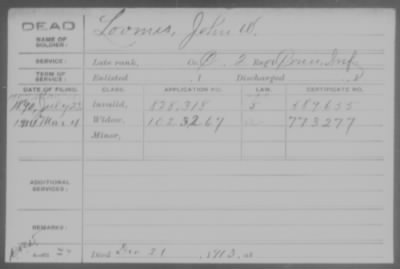 DEAD
NAME OF SOLDIER: Loomis, John W.
SERVICE: Late rank, Co. C. 2 Reg't Conn. Inf.
TERM OF SERVICE: Enlisted , 1 Discharged , 8
DATE OF FILING. CLASS. APPLICATION NO. LAW. CERTIFICATE NO.
1890, July 23 Invalid, 828,318 589655
1914 Mar 4 Widow, 1023267 773277
Minor,
ADDITIONAL SERVICES:
REMARKS:
Died Dec 31, 1913, at